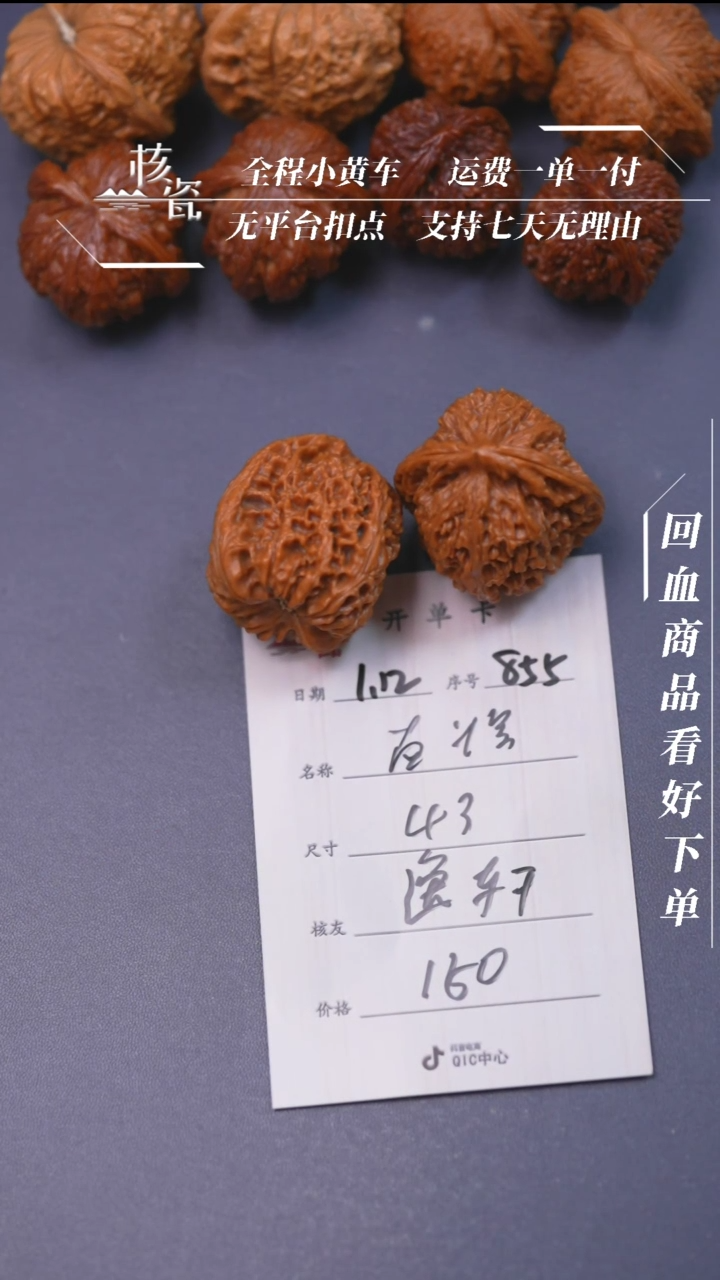 核瓷
全程小黄车 运费一单一付
无平台扣点 支持七天无理由
回血商品看好下单
开单卡
日期 1.12 序号 855
名称
尺寸 43
核友 逸轩
价格 160
抖音电商
QIC中心